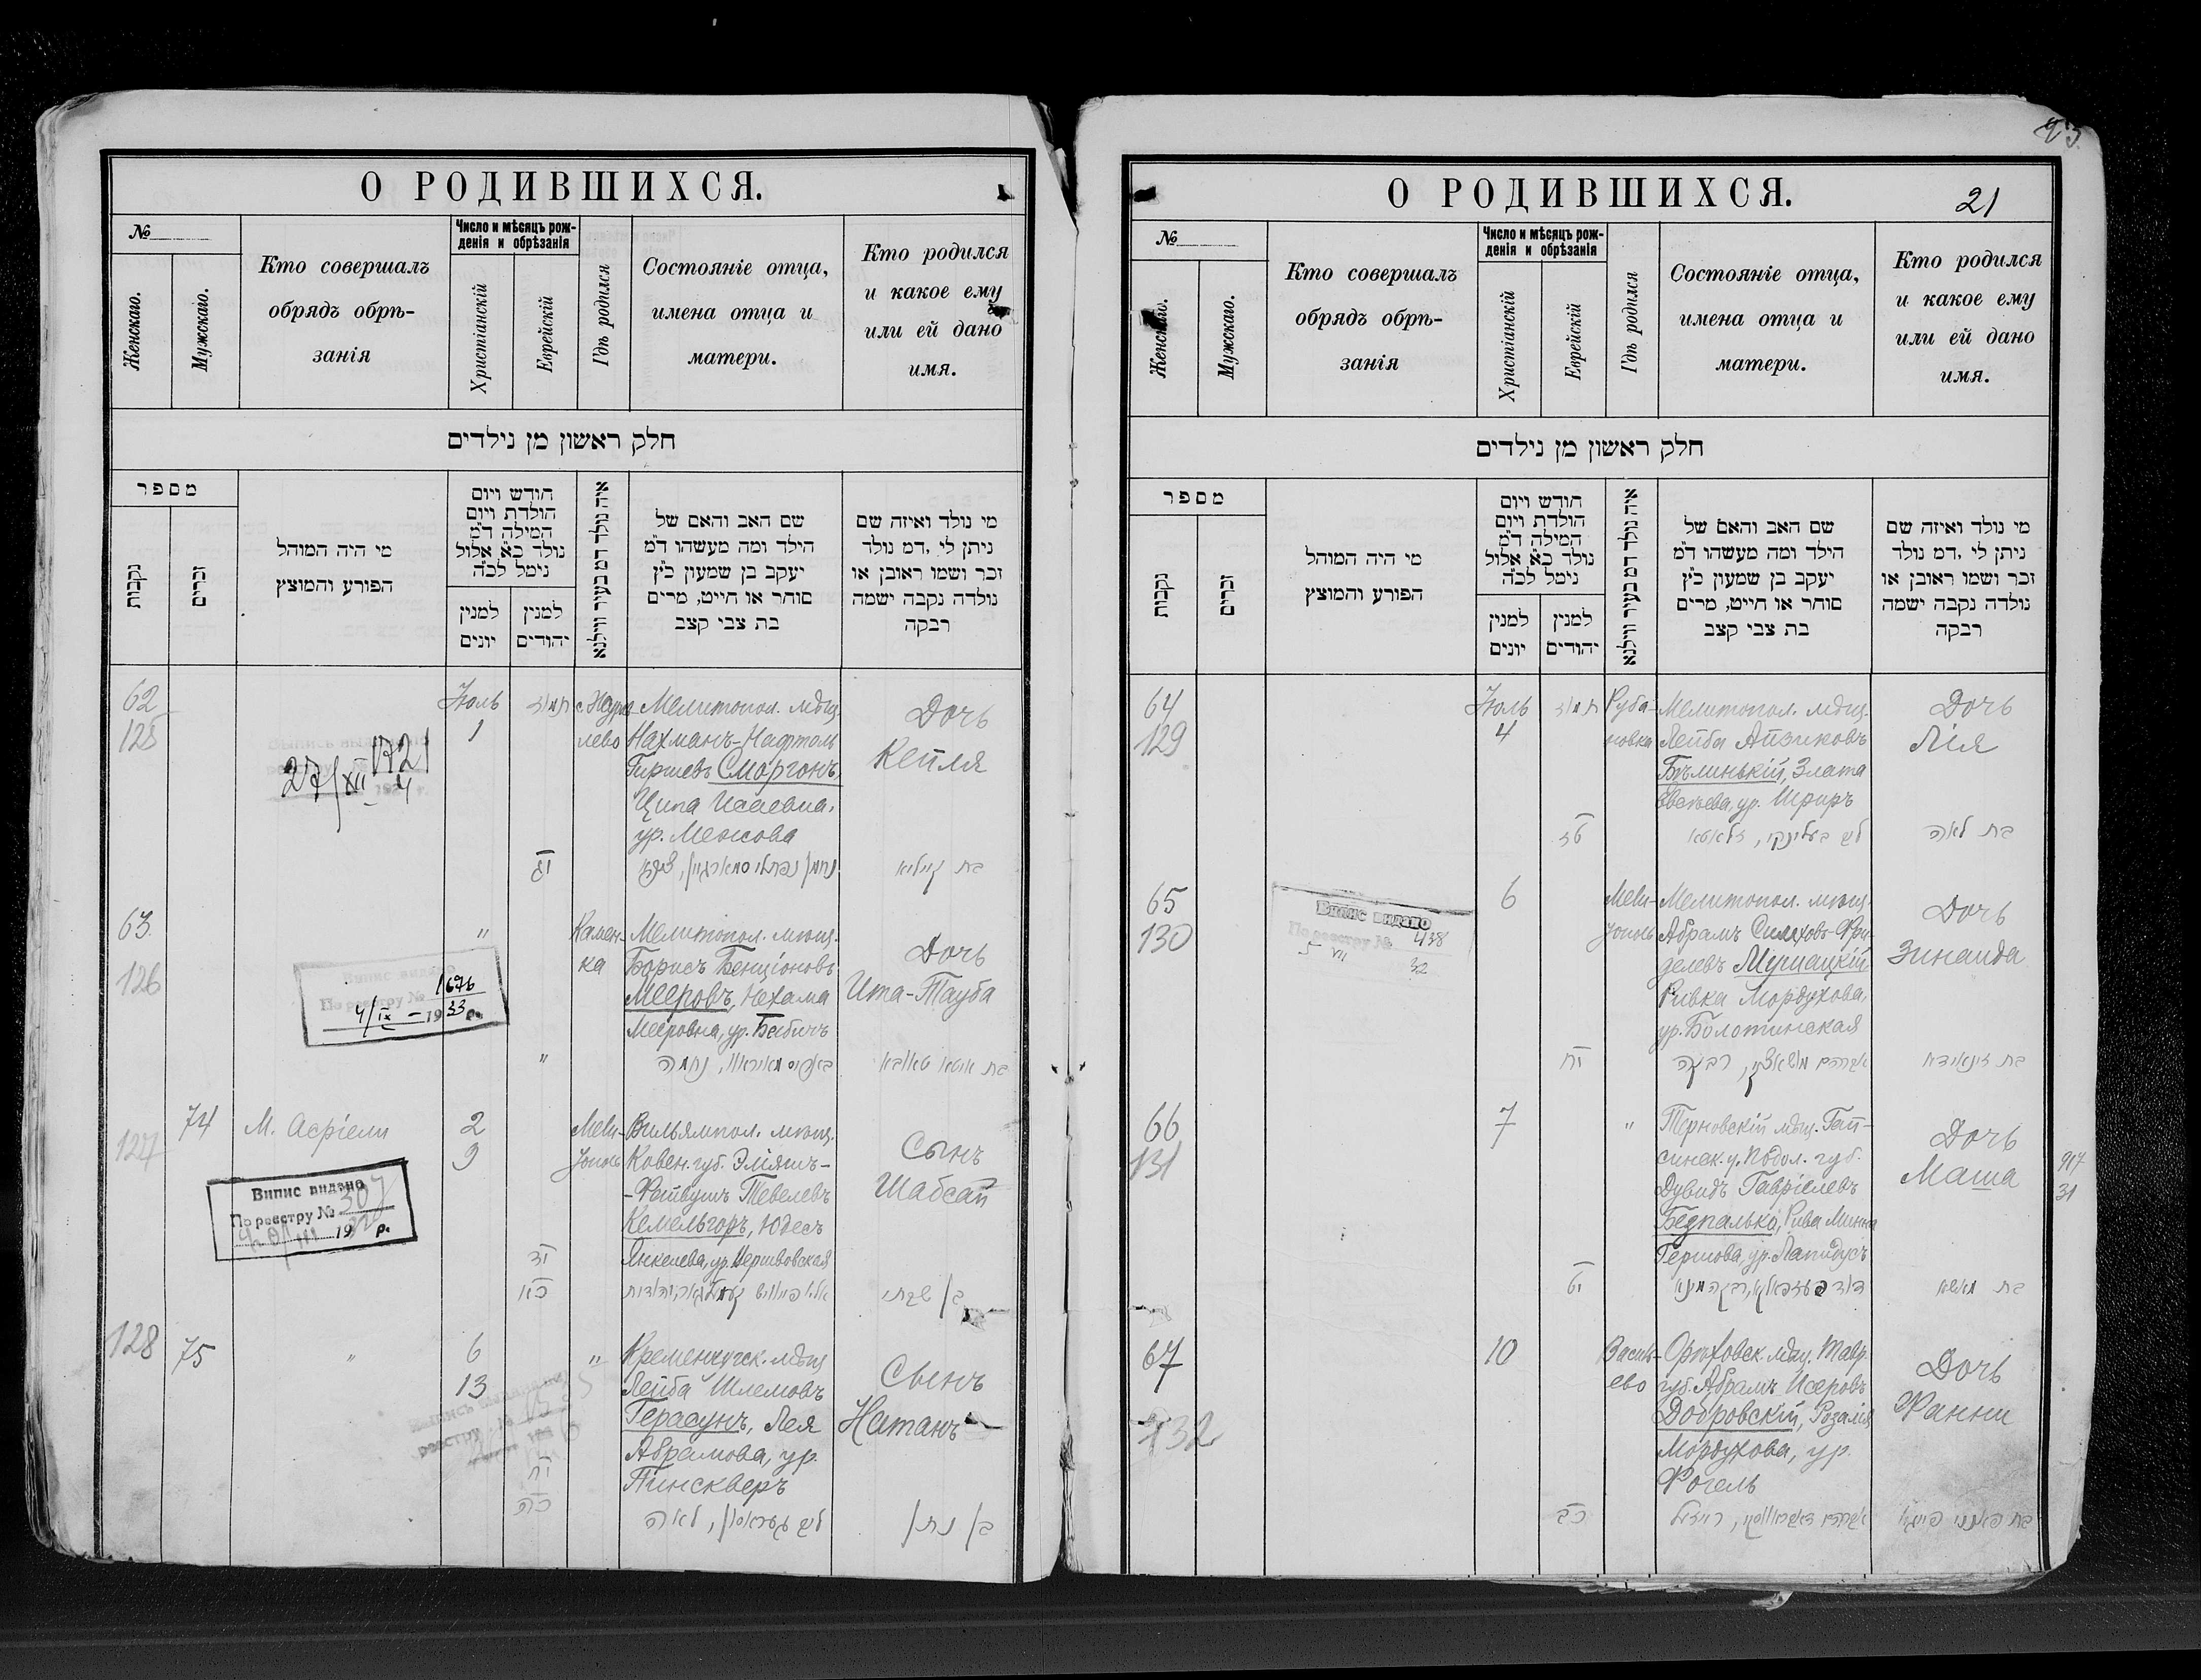 О РОДИВШИХСЯ.
№
Женскаго.
Мужскаго.
Кто совершалъ
обрядъ обрѣ-
занія
Число и мѣсяцъ рож-
денія и обрѣзанія
Христіанскій
Еврейскій
Гдѣ родился
Состояніе отца,
имена отца и
матери.
Кто родился
и какое ему
или ей дано
имя.
חלק ראשון מן נילדים
מספר
נקבות
זכרים
מי היה המוהל
הפורע והמוצץ
חודש ויום
הולדת ויום
המילה ד״מ
נולד כ״א אלול
נימל לכ״ה
למנין
יונים
למנין
יהודים
איה נולד דמ בעיר ווילנא
שם האב והאם של
הילד ומה מעשהו ד״מ
יעקב בן שמעון כ״ץ
סוחר או חייט, מרים
בת צבי קצב
מי נולד ואיזה שם
ניתן לי, דמ נולד
זכר ושמו ראובן או
נולדה נקבה ישמה
רבקה
62
125
27/XII
1721
Іюль
1
תמוז
יג
лево
Мелитопол. мѣщ.
Нахманъ-Нафтоль
Гиршевъ Сморгонъ,
Ципа Исаевна,
ур. Межова
Дочь
Кейля
בת קיילא
63
126
Випис видано
По реєстру № 1676
4/IX - 1933 р.
"
"
Камен-
ка
Мелитопол. мѣщ.
Борисъ Бенціоновъ
Мееровъ, Нехама
Мееровна, ур. Бабичъ
Дочь
Ита-Тауба
בת איטא טאובא
74
127
М. Асріели
Випис видано
По реєстру № 307
19 р.
2
9
יד
כא
Мели-
тополь
Вильямпол. мѣщ.
Ковен. губ. Эліашъ-
-Файвушъ Тевелевъ
Кемельгоръ, Юдесъ
Янкелева, ур.
Сынъ
Шабсай
בן שבתי
128
75
"
6
13
יח
כה
"
Кременчугск. мѣщ.
Лейба Шлемовъ
Герасунъ, Лея
Абрамова, ур.
Пинскверъ
לאה
Сынъ
Натанъ
בן נתן
23
О РОДИВШИХСЯ.
21
№
Женскаго.
Мужскаго.
Кто совершалъ
обрядъ обрѣ-
занія
Число и мѣсяцъ рож-
денія и обрѣзанія
Христіанскій
Еврейскій
Гдѣ родился
Состояніе отца,
имена отца и
матери.
Кто родился
и какое ему
или ей дано
имя.
חלק ראשון מן נילדים
מספר
נקבות
זכרים
מי היה המוהל
הפורע והמוצץ
חודש ויום
הולדת ויום
המילה ד״מ
נולד כ״א אלול
נימל לכ״ה
למנין
יונים
למנין
יהודים
איה נולד דמ בעיר ווילנא
שם האב והאם של
הילד ומה מעשהו ד״מ
יעקב בן שמעון כ״ץ
סוחר או חייט, מרים
בת צבי קצב
מי נולד ואיזה שם
ניתן לי, דמ נולד
זכר ושמו ראובן או
נולדה נקבה ישמה
רבקה
64
129
Іюль
4
תמוז
טז
Руба-
новка
Мелитопол. мѣщ.
Лейба Айзиковъ
Бѣлинькій, Злата
ур. Шриръ
Дочь
Лія
בת לאה
65
130
Випис видано
По реєстру № 438
5 VII 32
6
יח
Мели-
тополь
Мелитопол. мѣщ.
Абрамъ Симхов-Фри-
делевъ Мушацкій
Ривка Мордухова,
ур. Болотинская
רבקה
Дочь
Зинаида
בת זינאידא
66
131
7
יט
"
Терновскій мѣщ. Гай-
синск. у. Подол. губ.
Дувидъ Гавріелевъ
Бедпалько, Рива Минна
Гершова, ур. Лапидусъ
Дочь
Маша
בת מאשא
917
31
67
132
10
כב
Василь-
ево
Орѣховск. мѣщ. Тавр.
губ. Абрамъ Исеровъ
Добровскій, Розалія
Мордухова, ур.
Фогель
Дочь
Фанни